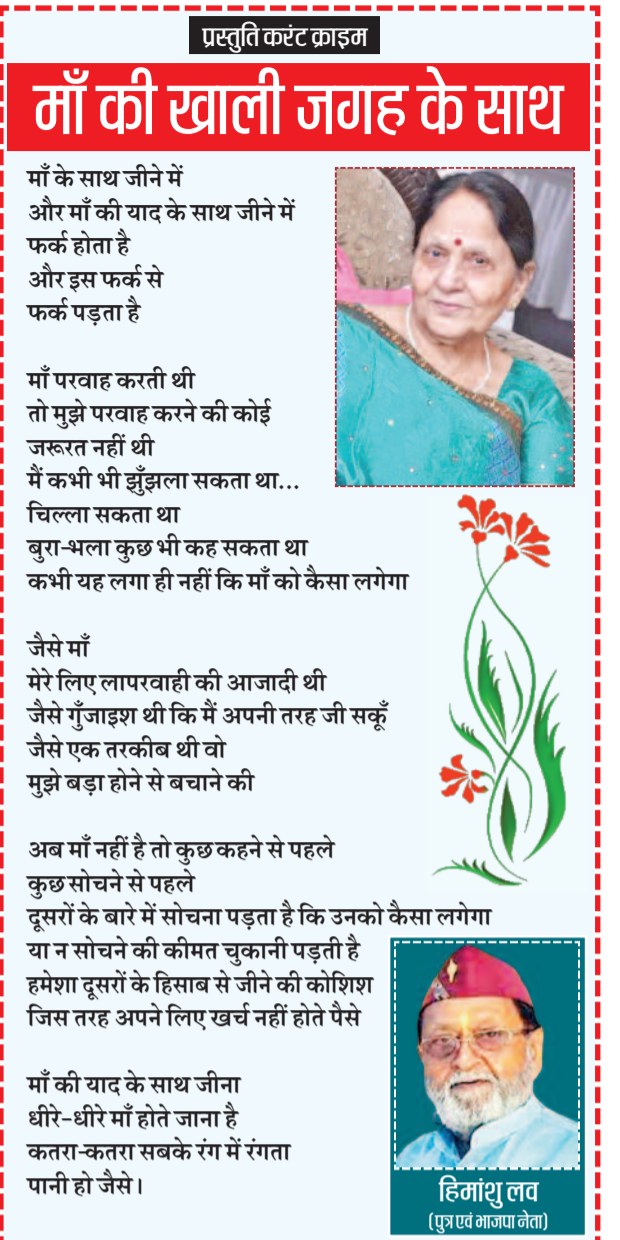 प्रस्तुति करंट क्राइम
माँ की खाली जगह के साथ
माँ के साथ जीने में
और माँ की याद के साथ जीने में
फर्क होता है
और इस फर्क से
फर्क पड़ता है
माँ परवाह करती थी
तो मुझे परवाह करने की कोई
जरूरत नहीं थी
मैं कभी भी झुँझला सकता था...
चिल्ला सकता था
बुरा-भला कुछ भी कह सकता था
कभी यह लगा ही नहीं कि माँ को कैसा लगेगा
जैसे माँ
मेरे लिए लापरवाही की आजादी थी
जैसे गुँजाइश थी कि मैं अपनी तरह जी सकूँ
जैसे एक तरकीब थी वो
मुझे बड़ा होने से बचाने की
अब माँ नहीं है तो कुछ कहने से पहले
कुछ सोचने से पहले
दूसरों के बारे में सोचना पड़ता है कि उनको कैसा लगेगा
या न सोचने की कीमत चुकानी पड़ती है
हमेशा दूसरों के हिसाब से जीने की कोशिश
जिस तरह अपने लिए खर्च नहीं होते पैसे
माँ की याद के साथ जीना
धीरे-धीरे माँ होते जाना है
कतरा-कतरा सबके रंग में रंगता
पानी हो जैसे।
हिमांशु लव
(पुत्र एवं भाजपा नेता)